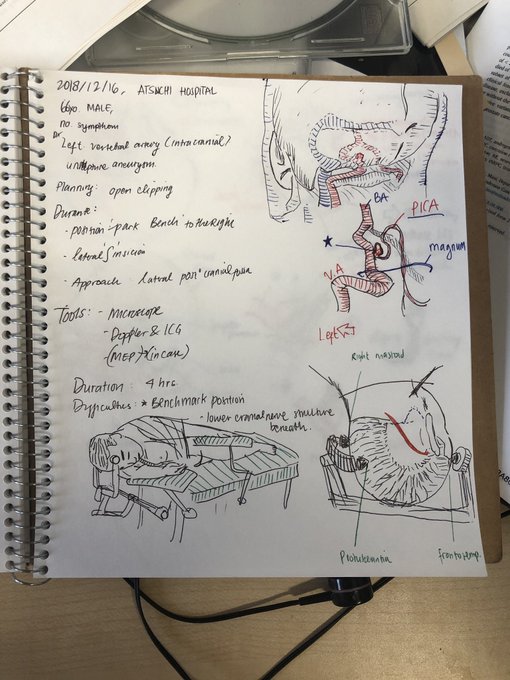 2018/12/16, ATSUCHI HOSPITAL
66yo. MALE,
no sympthom
Dx Left vertebral artery (intracranial)
unrupture aneurysm.
Planning: open clipping
Durante:
- position "park bench" to the Right
- lateral "S" insicion
- Approach lateral post cranial fossa
Tools: - Microscope
- Doppler & ICG
- (MEP) (in case)
Duration: 4 hrs.
Difficulties: * Benchmark position
- lower cranial nerve structure
beneath.
BA
PICA
magnum
VA
Left
Right mastoid
Protuberantia
frontotemp.